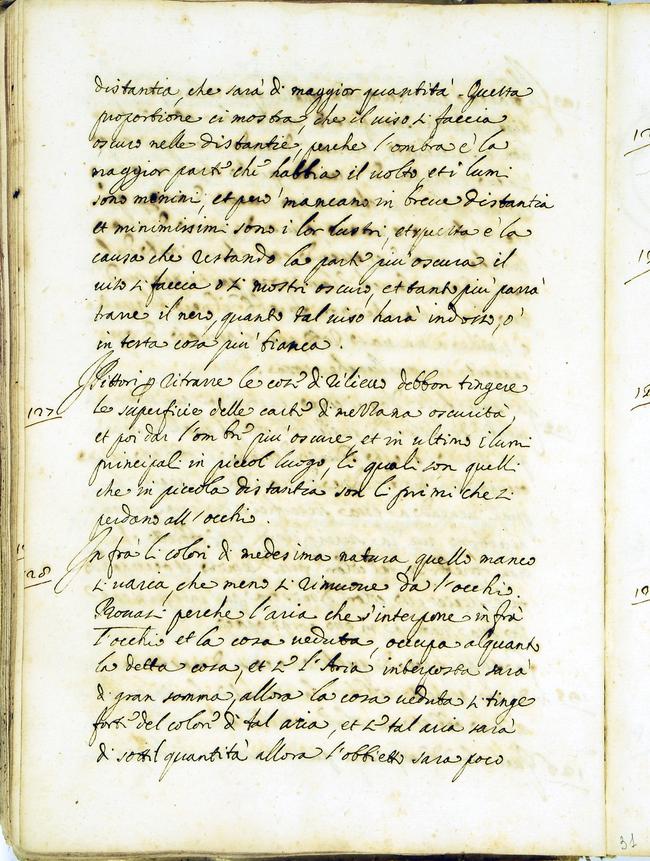 distantia, che sarà di maggior quantità. Questa
proportione ci mostra, che il uiso si faccia
oscuro nelle distantie, perche l'ombra è la
maggior parte che habbia il uolto, et i lumi
sono minimi, et però mancano in breue distantia
et minimissimi sono i lor lustri, et questa è la
causa che restando la parte più oscura il
uiso si faccia o si mostri oscuro, et tanto più parrà
trarre il nero, quanto tal uiso harà indosso, ò
in testa cosa più bianca.
127
Pittori p ritrarre le cose di rilieuo debbon tingere
le superficie delle carte di mezzana oscurità,
et poi dar l'ombre più oscure, et in ultimo i lumi
principali in piccol luogo, li quali son quelli
che in piccola distantia son li primi che si
perdano all'occhio.
128
Infrà li colori di medesima natura, quello manco
si uaria, che meno si rimuoue da l'occhio.
Prouasi perche l'aria che s'interpone infrà
l'occhio et la cosa ueduta, occupa alquanto
la detta cosa, et se l'Aria interposta sarà
di gran somma, allora la cosa ueduta si tinge
forte del colore di tal aria, et se tal aria sarà
di sottil quantità allora l'obbietto sara poco
31